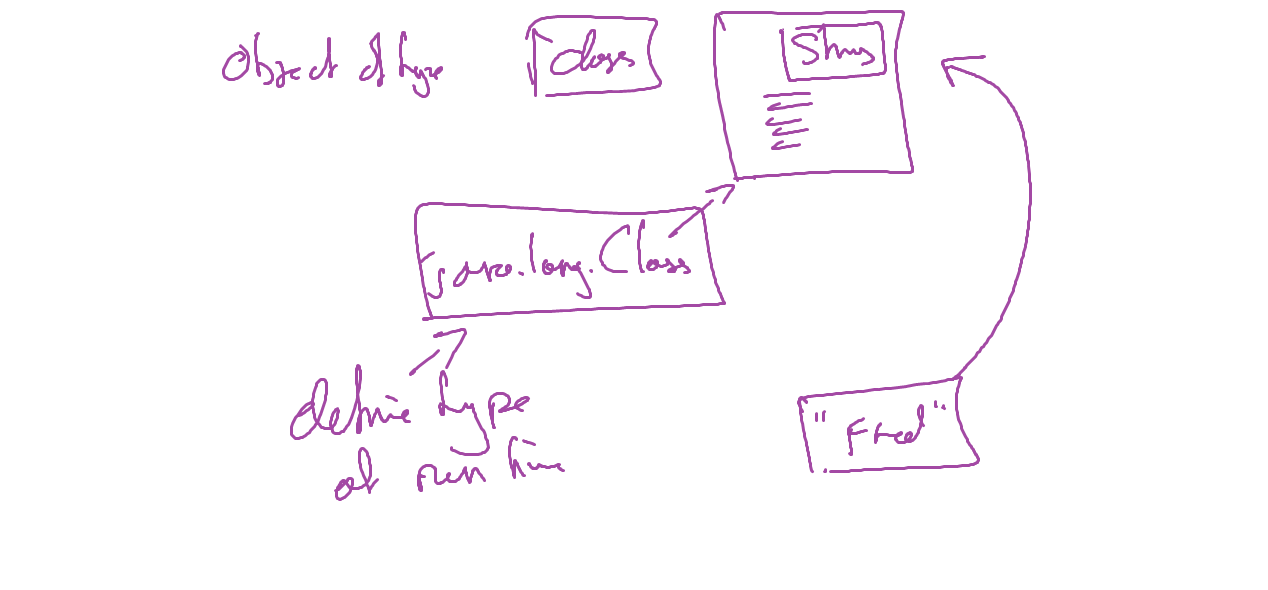 Object of type
class
String
java.lang.Class
define type
at run time
"Fred"